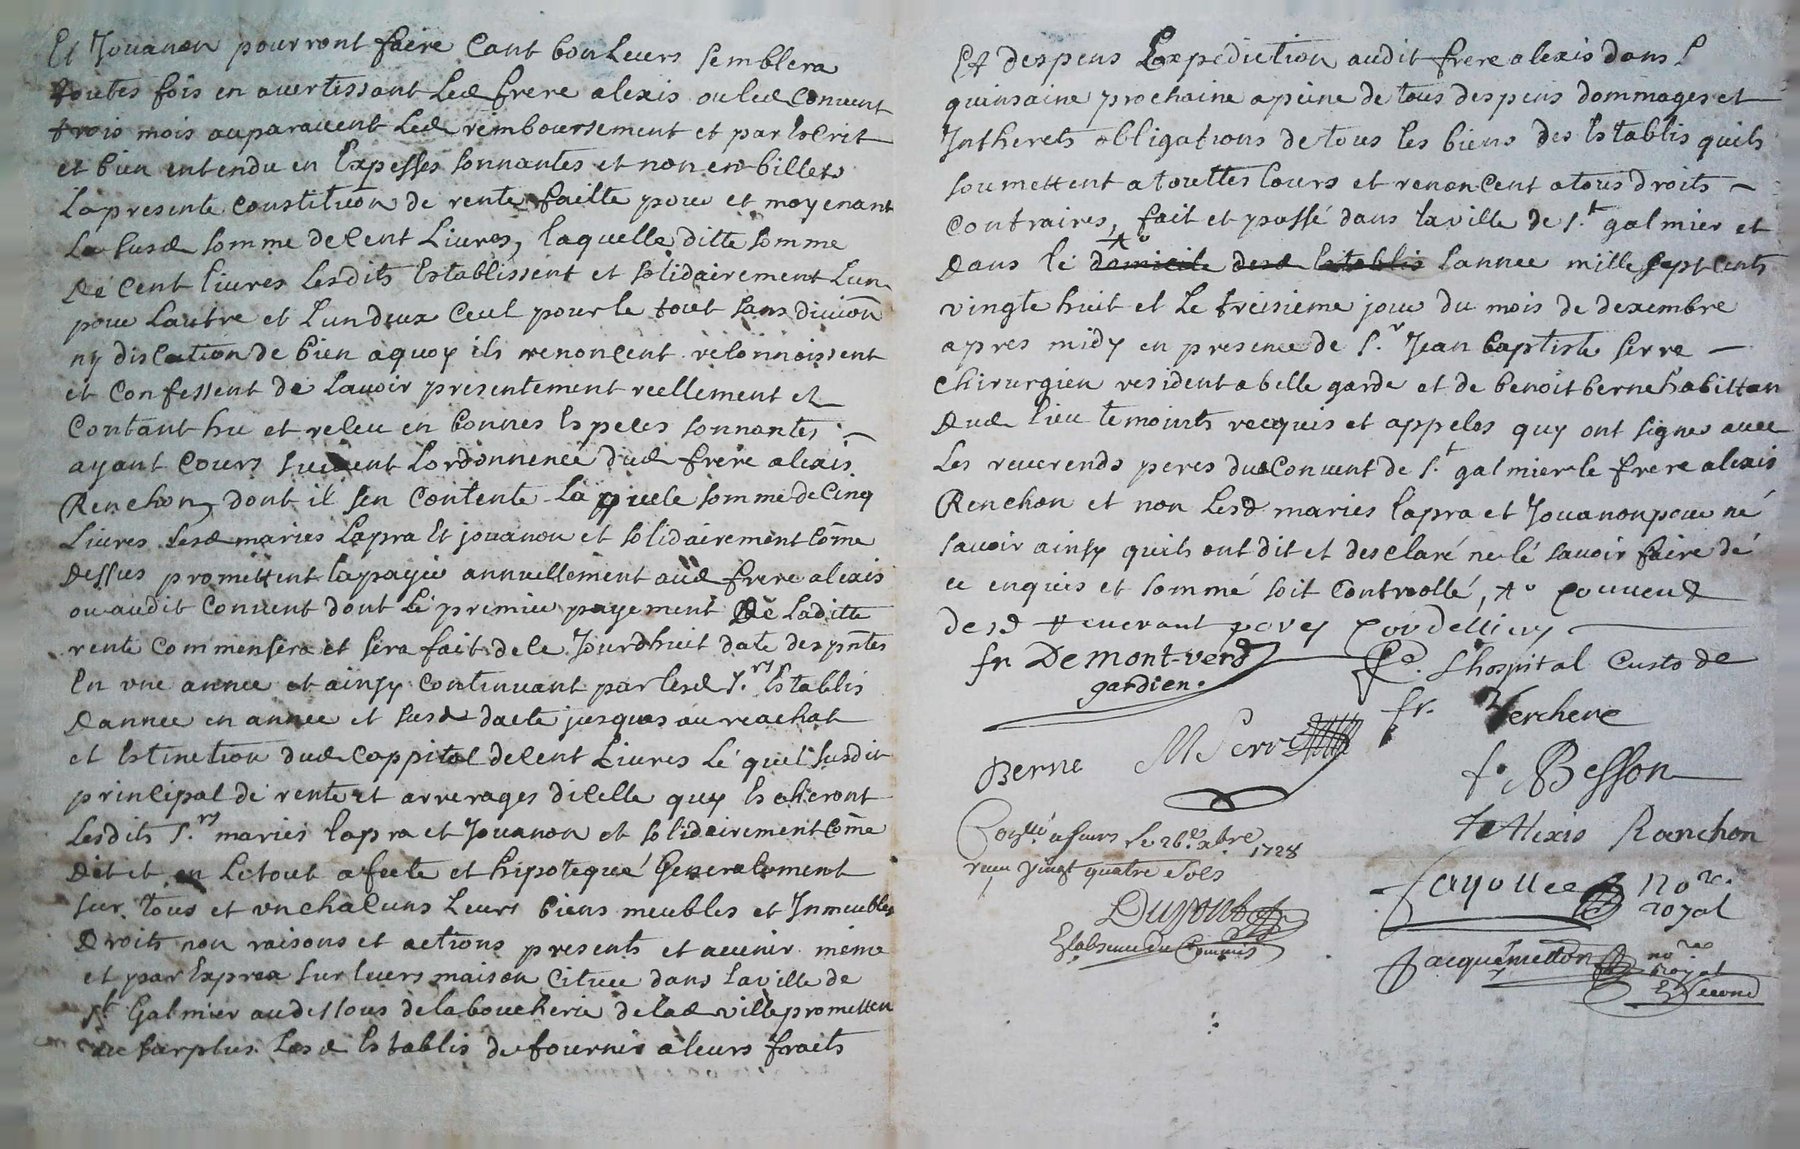 Et Jouanon pourront faire Cant bon Leurs semblera
toutes fois en avertissant Led frere alexis ou led Convent
trois mois auparavent Led remboursement et par Escrit
et bien entendu en Expesses sonnantes et non en billets
La presente constitution de rente faitte pour et moyenant
La susd somme de Cent Livres, laquelle ditte somme
De Cent livres Lesdits Establissent et solidairement Lun
pour Lautre et Lun deux Ceul pour le tout sans division
ny discution de bien a quoy ils renoncent reconnoissent
et Confessent de Lavoir presentement reellement et
Contant hu et releu en bonnes Especes sonnantes
ayant Cours suivent Lordonnence dud frere alexis
Renchon, dont il sen Contente La quele somme de Cinq
Livres Lesd maries Lapra Et jouanon et solidairement Come
Dessus promettent la payer annuellement aud frere alexis
ou audit Convent dont Le premier payement De Laditte
rente Commensera et sera fait de Ce Jourdhuit date des pntes
En une année et ainsy Continuant par lesd Srs Establis
Dannee en annee et susd dacte jusques au reachat
et Estinction dud Cappital de Cent Livres Le quel susdit
principal de rente et arrerages dicelle quy Echeront
Lesdits Srs maries lapra et Jouanon et solidairement Come
Dit et en Le tout afecte et hipotequé Generalement
sur tous et un chacuns Leurs biens meubles et Inmeubles
Droits non raisons et actions presents et avenir même
et par Exprea sur leurs maison Citiuee dans la ville de
St Galmier au dessous de la boucherie de lad ville prometten
au surplus Lesd Establis de fournir a leurs fraits
Et despens Lexpediction audit frere alexis dans l
quinsaine prochaine a peine de tous despens dommages et
Intherets obligations de tous les biens des Establis quils
soumettent a touttes Cours et renoncent a tous droits
Contraires, fait et passé dans la ville de St galmier et
Dans le domicile desd Establis Lannee mille sept cents
vingte huit et Le treisieme jour du mois de dexembre
apres midy en presence de Sr Jean baptiste serre
Chirurgien resident a belle garde et de benoit berne habittan
Dud lieu temoints requis et appeles quy ont signes avec
Les reverends peres dud Convent de St galmier le frere alexis
Renchon et non Lesd maries lapra et Jouanon pour né
savoir ainsy quils ont dit et desclaré ne lé savoir faire dé
ce enquis et sommé soit Controllé, +o couvend
desd reverant perey Cordelliery
fr Demont-verd
gardien.
Lhospital Custode
fr. Verchere
Berne MSerre
f. Besson
f Alexis Ranchon
Conlle a feurs Le 26e xbre 1728
receu Vingt quatre sols
Dupont
En labsence du Commis
Jayollee nore royal
Jacquemetton nore Royal
Et Second